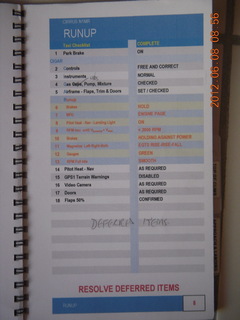 RUNUP
Taxi Checklist COMPLETE
1 Park Brake ON
2 Controls FREE AND CORRECT
3 Instruments NORMAL
4 Gas Gage, Pump, Mixture CHECKED
5 Airframe - Flaps, Trim & Doors SET / CHECKED
Runup
6 Brakes HOLD
7 ENGINE PAGE
8 ON
9
10 Brakes HOLDING AGAINST POWER
11
12 GREEN
13 SMOOTH
14 Pitot Heat - Nav AS REQUIRED
15 GPS1 Terrain Warnings DISABLED
16 Video Camera AS REQUIRED
17 Doors AS REQUIRED
18 Flaps 50% CONFIRMED
DEFERRED ITEMS
RESOLVE DEFERRED ITEMS
RUNUP
2012-06-08 08:56